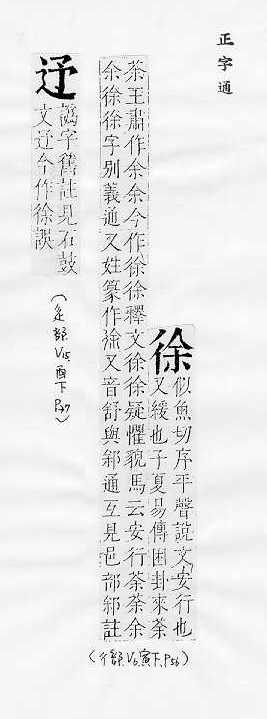 正字通
徐
似魚切序平聲說文安行也
又緩也子夏易傳困卦來荼
荼王肅作余余今作徐徐釋文徐徐疑懼貌馬云安行荼荼余
余徐徐字別義通又姓篆作又音舒與邪通互見邑部邪註
(彳部.V6,寅下,P56)
譌字舊註見石鼓
文今作徐誤
(辵部.V15,酉下,P27)